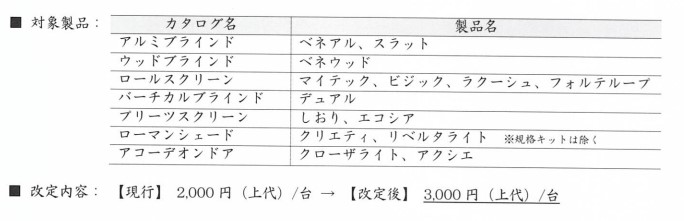 ■ 対象製品： カタログ名 製品名
アルミブラインド ベネアル、スラット
ウッドブラインド ベネウッド
ロールスクリーン マイテック、ビジック、ラクーシュ、フォルテループ
バーチカルブラインド デュアル
プリーツスクリーン しおり、エコシア
ローマンシェード クリエティ、リベルタライト ※規格キットは除く
アコーデオンドア クローザライト、アクシエ
■ 改定内容： 【現行】 2,000 円（上代）/台 → 【改定後】 3,000 円（上代）/台